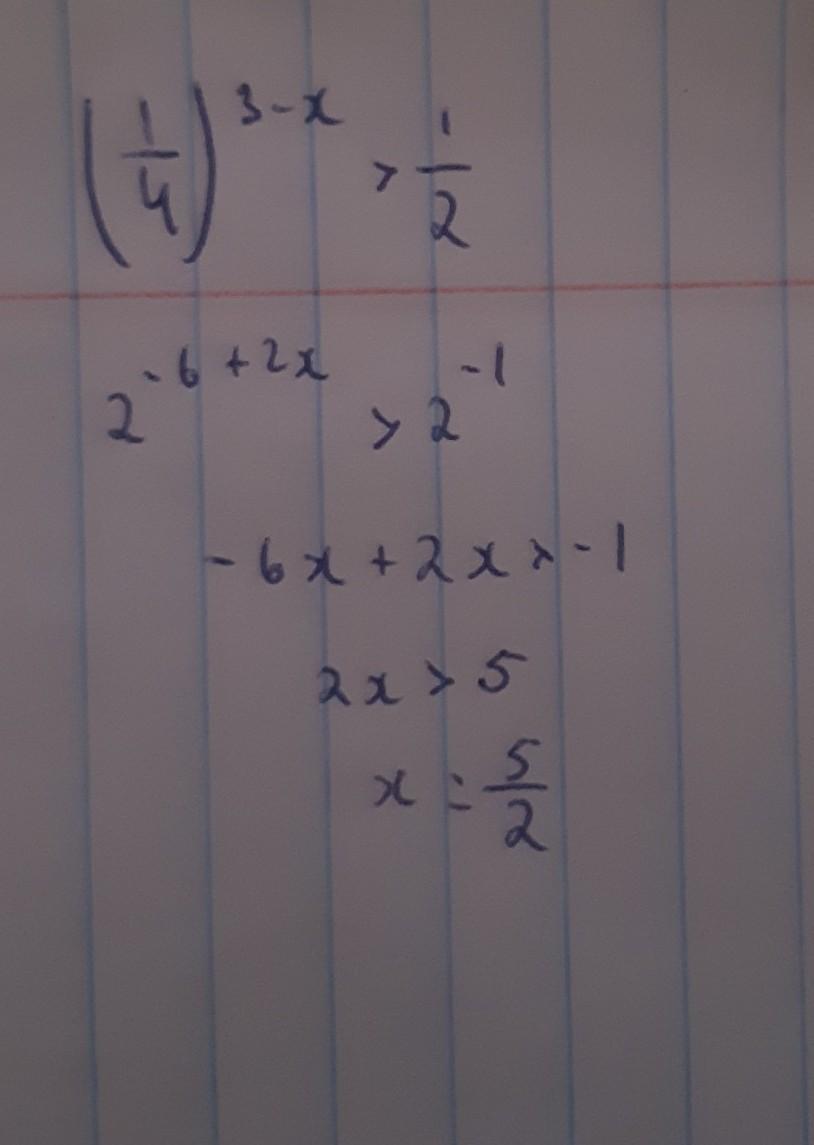 (1/4)^(3-x) > 1/2
2^(-6+2x) > 2^(-1)
-6x + 2x > -1
2x > 5
x = 5/2